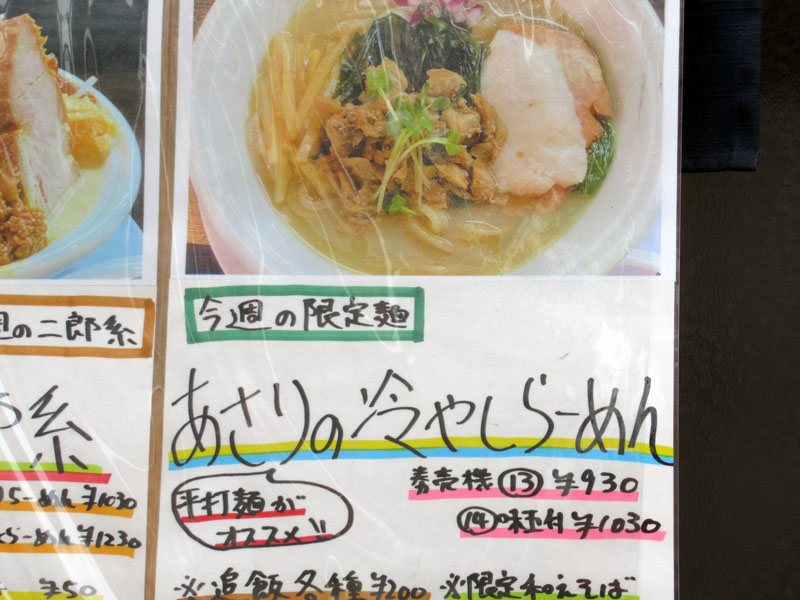 週の二郎系
系
らーめん ¥1030
らーめん ¥1230
¥50
今週の限定麺
あさりの冷やしらーめん
平打麺が
オススメ!!
券売機 ⑬ ¥930
⑭味玉付 ¥1030
※追飯各種¥200 ※限定和えそば